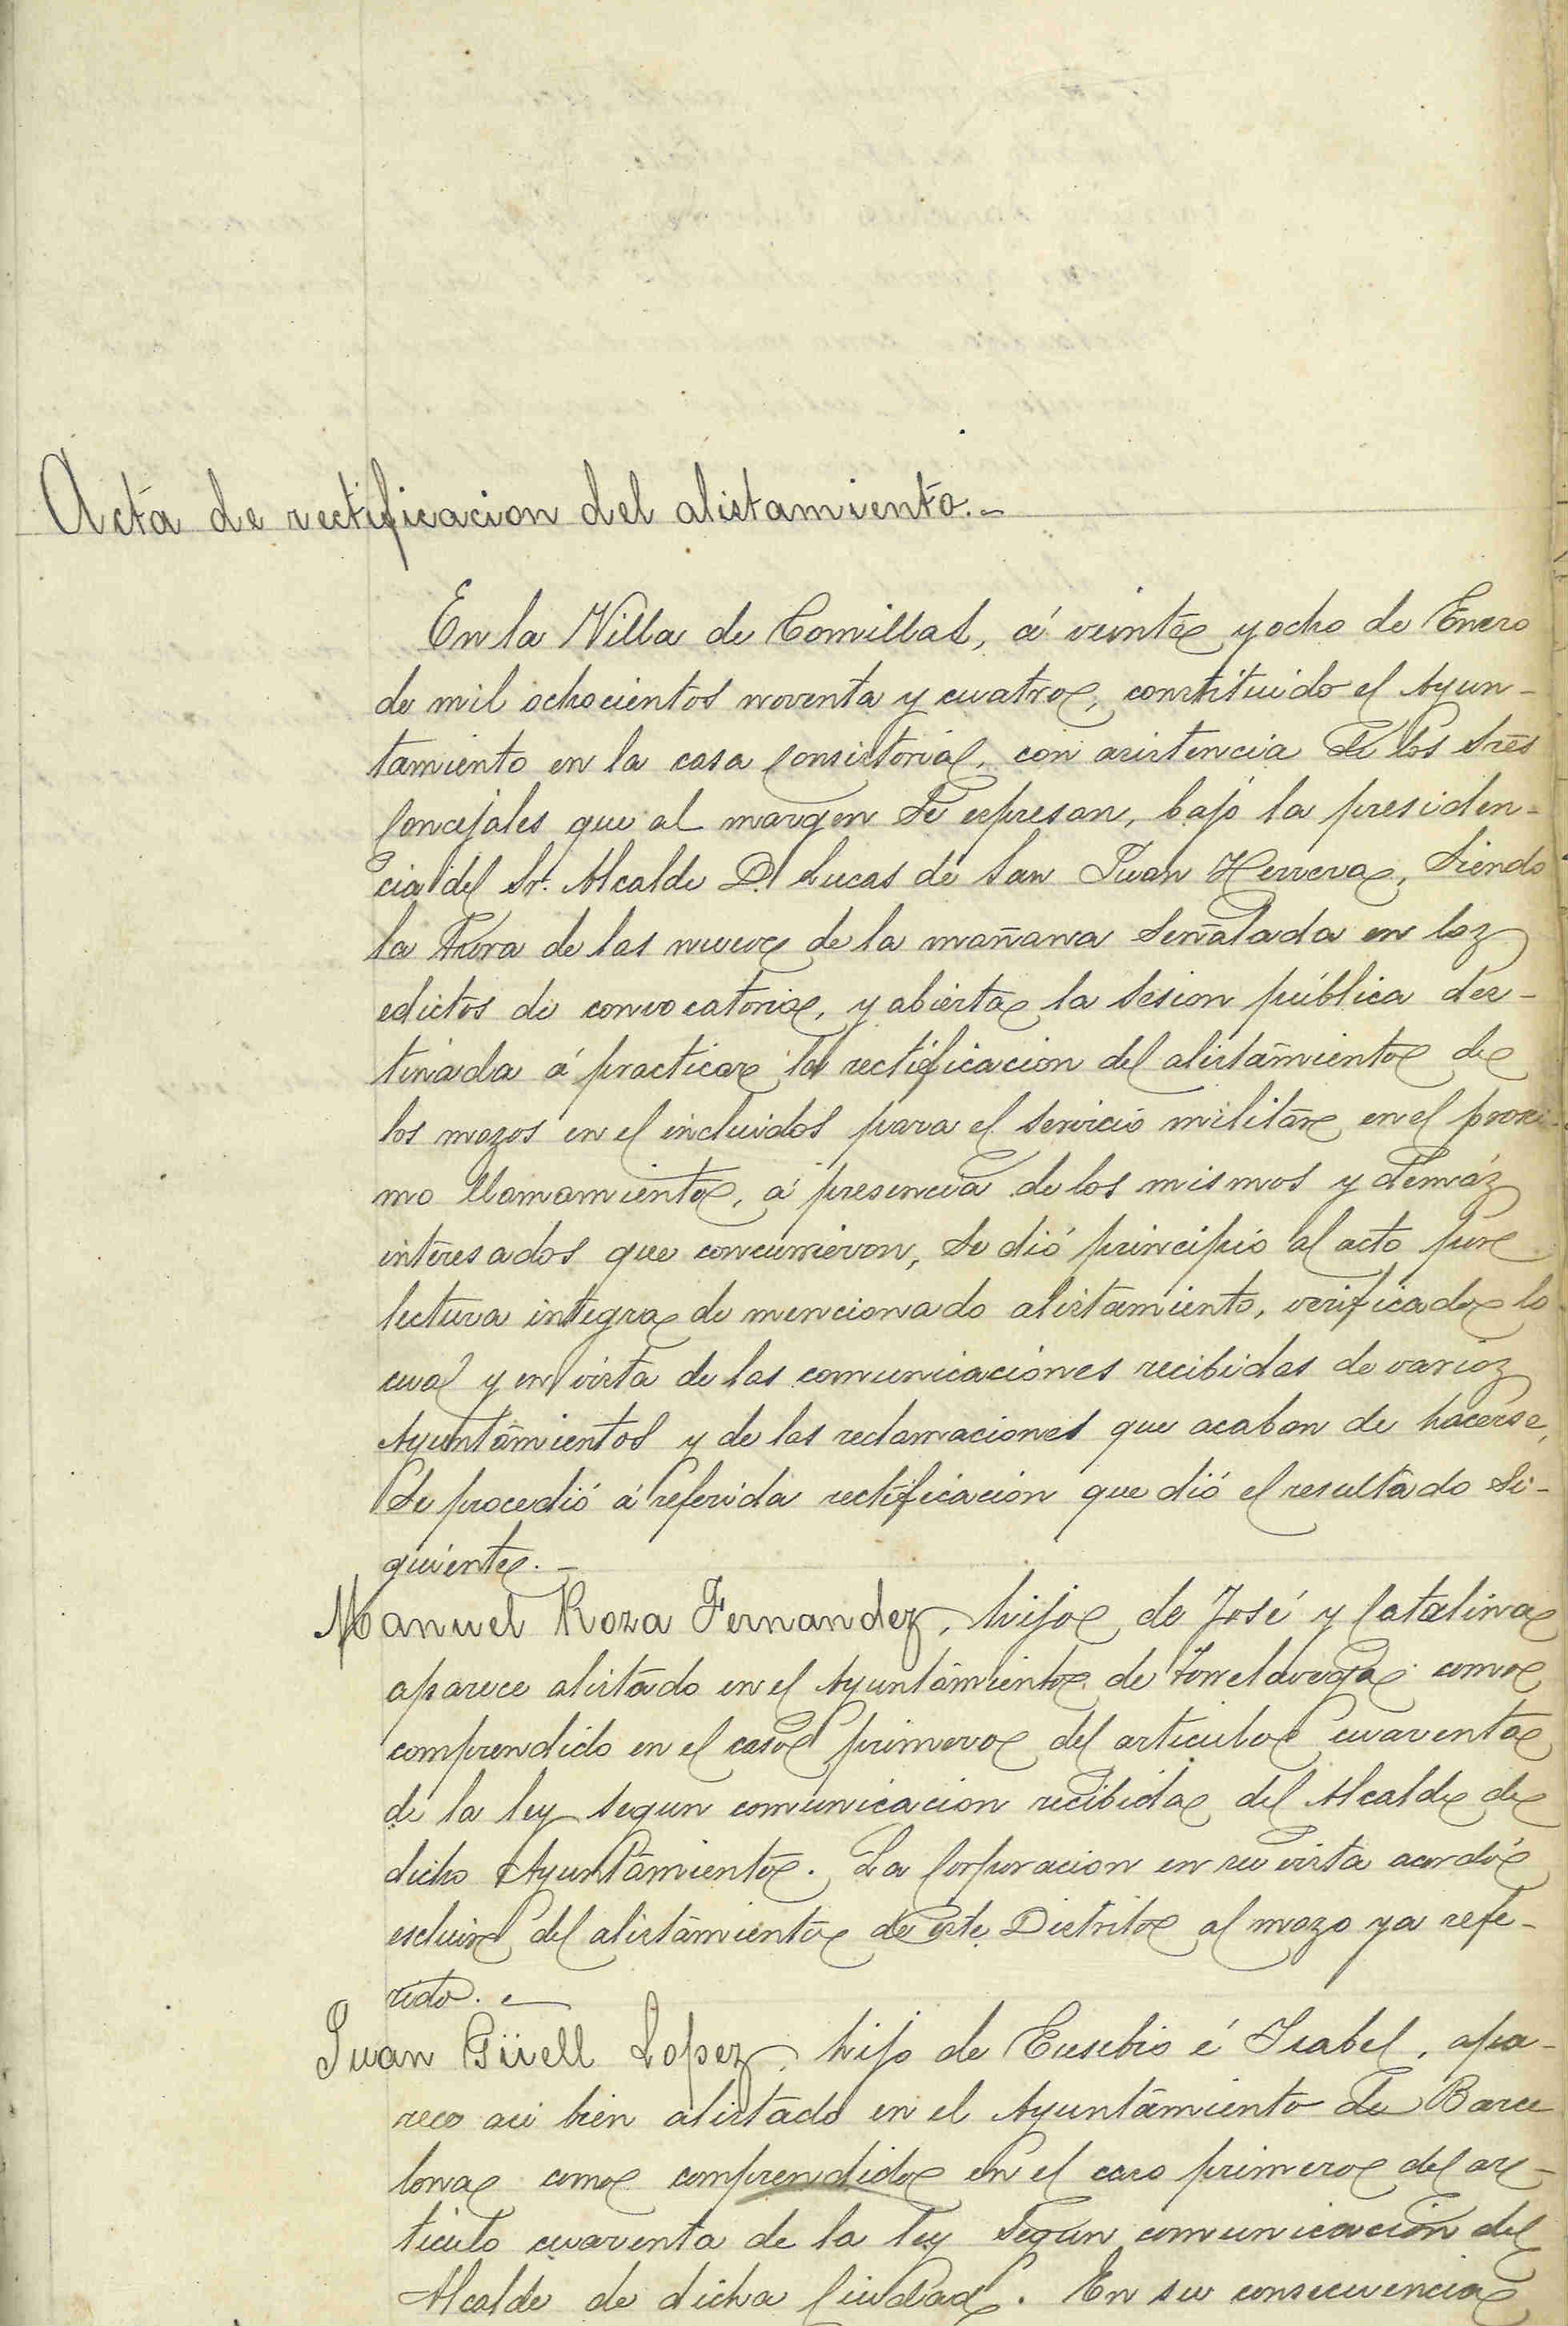 Acta de rectificacion del alistamiento.-
En la Villa de Comillas, á veinte y ocho de Enero
de mil ochocientos noventa y cuatro, constituido el Ayun-
tamiento en la casa Consistorial, con asistencia de los Sres
Concejales que al margen se expresan, bajo la presiden-
cia del Sr. Alcalde D. Lucas de San Juan Herrera, siendo
la hora de las nueve de la mañana señalada en los
edictos de convocatoria, y abierta la sesion pública des-
tinada á practicar la rectificacion del alistamiento de
los mozos en el incluidos para el servicio militar en el proxi-
mo llamamiento, á presencia de los mismos y demás
interesados que concurrieron, se dió principio al acto por
lectura integra de mencionado alistamiento, verificado lo
cual y en vista de las comunicaciones recibidas de varios
Ayuntamientos y de las reclamaciones que acaban de hacerse,
se procedió á referida rectificacion que dió el resultado si-
guiente.-
Manuel Roza Fernandez, hijo de José y Catalina
aparece alistado en el Ayuntamiento de Torrelavega como
comprendido en el caso primero del articulo cuarenta
de la ley segun comunicacion recibida del Alcalde de
dicho Ayuntamiento. La Corporacion en su vista acordó
escluir del alistamiento de este Distrito al mozo ya refe-
rido.-
Juan Güell Lopez, hijo de Eusebio é Isabel, apa-
rece asi bien alistado en el Ayuntamiento de Barce
lona como comprendido en el caso primero del ar-
ticulo cuarenta de la ley segun comunicacion del
Alcalde de dicha Ciudad. En su consecuencia